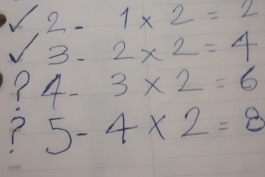 ✓ 2 - 1 × 2 = 2
✓ 3 - 2 × 2 = 4
? 4 - 3 × 2 = 6
? 5 - 4 × 2 = 8